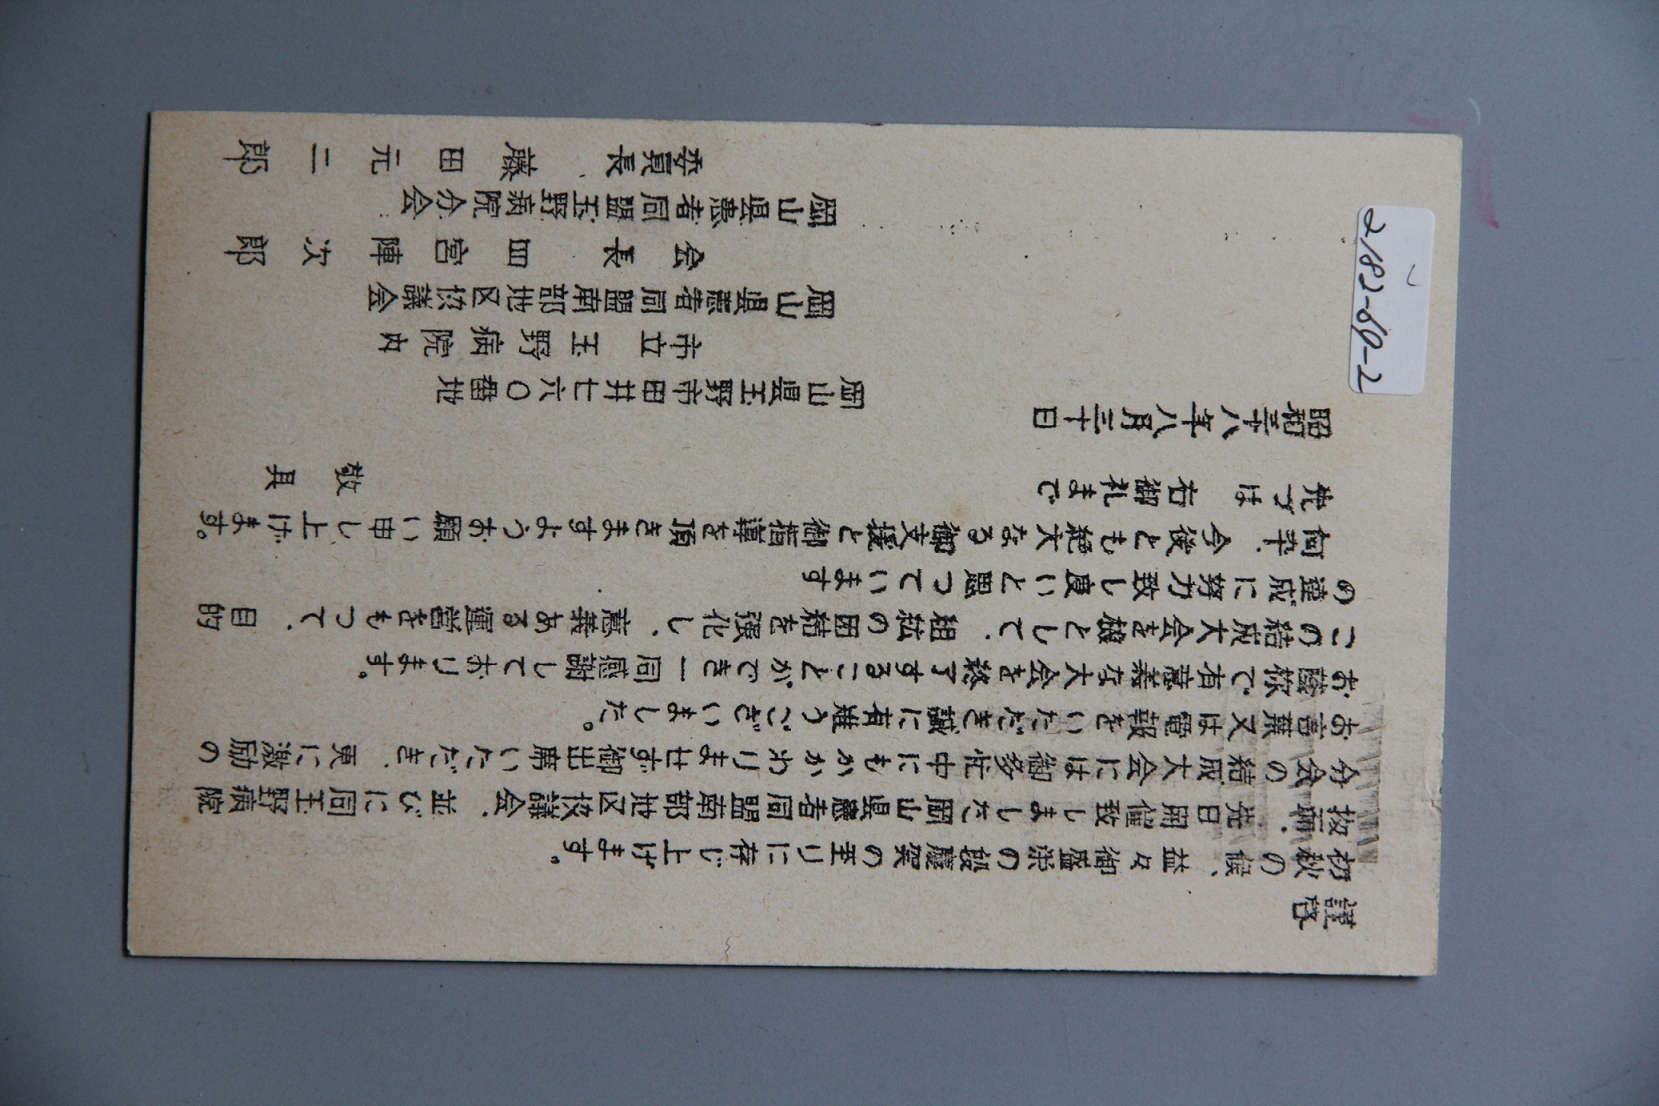 謹啓
初秋の候、益々御盛栄の段慶賀の至りに存じ上げます。
扨而、先日開催致しました岡山県患者同盟南部地区協議会、並びに同玉野病院
分会の結成大会には御多忙中にもかかわりませず御出席いただき、更に激励の
お言葉又は電報をいただき誠に有難うございました。
お蔭様で有意義な大会を終了することができ一同感謝しております。
この結成大会を機として、組織の団結を強化し、意義ある運営をもつて、目的
の達成に努力致し度いと思つています
何卒、今後とも絶大なる御支援と御指導を頂きますようお願い申し上げます。
先づは 右御礼まで
敬具
昭和三十八年八月三十日
岡山県玉野市田井七六〇番地
市立玉野病院内
岡山県患者同盟南部地区協議会
会長 四宮陣次郎
岡山県患者同盟玉野病院分会
委員長 藤田元二郎
2182-60-2